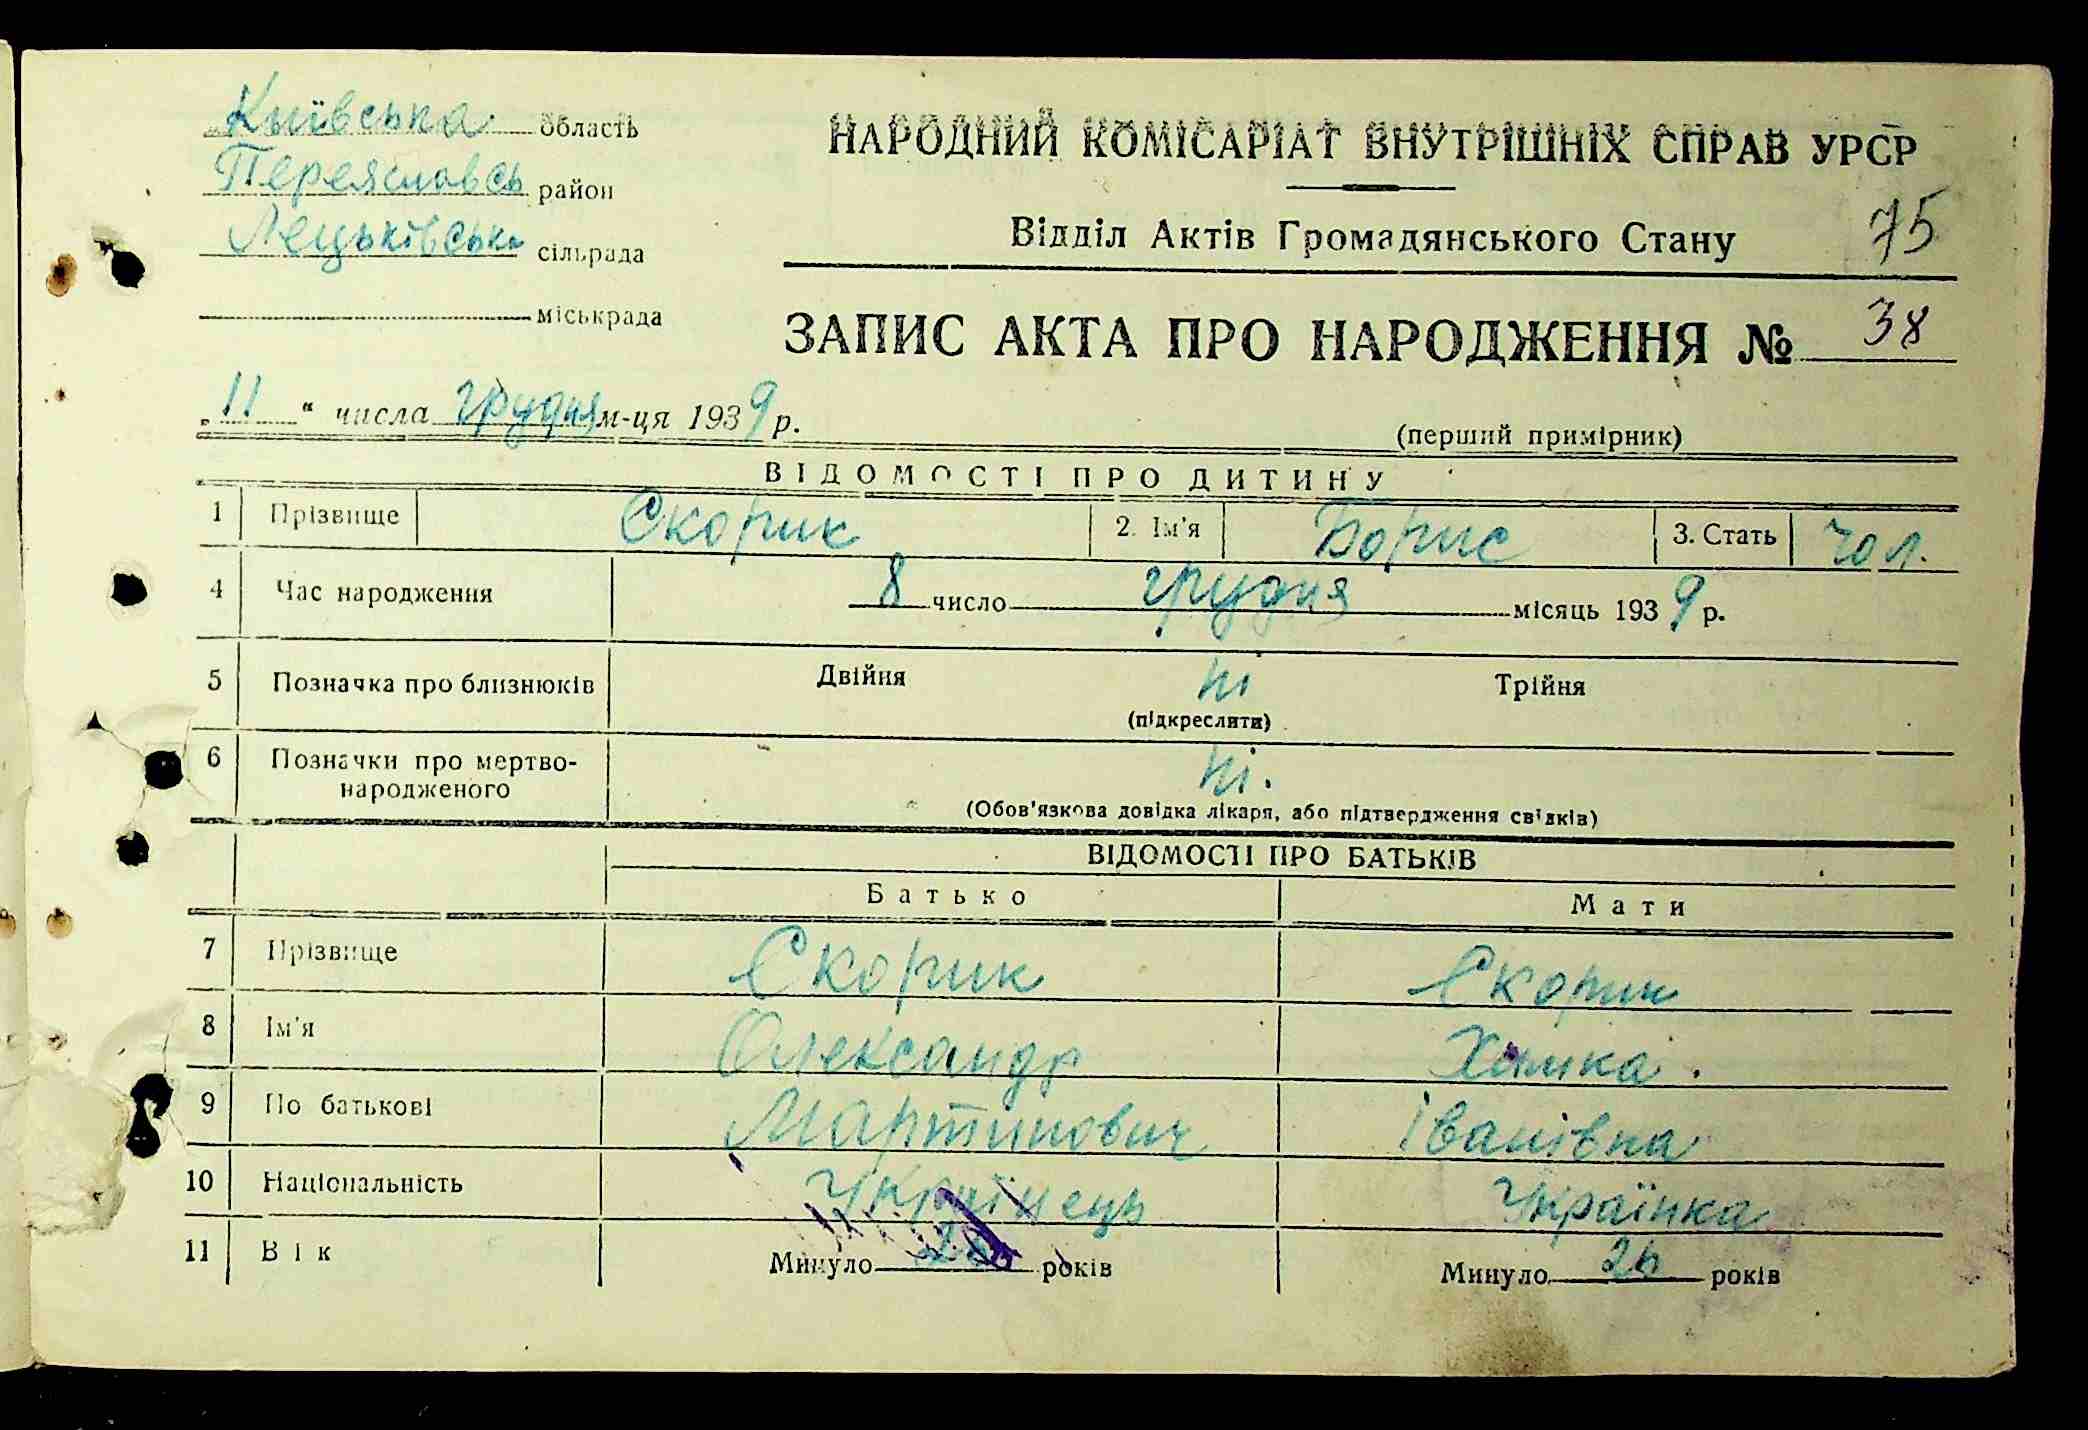 Київська область
Переяславсь район
Лецьківська сільрада
міськрада
НАРОДНИЙ КОМІСАРІАТ ВНУТРІШНІХ СПРАВ УРСР
Відділ Актів Громадянського Стану
75
ЗАПИС АКТА ПРО НАРОДЖЕННЯ № 38
„11“ числа грудня м-ця 1939 р.
(перший примірник)
ВІДОМОСТІ ПРО ДИТИНУ
1 Прізвище Скорик 2. Ім'я Борис 3. Стать чол.
4 Час народження 8 число грудня місяць 1939 р.
5 Позначка про близнюків Двійня ні Трійня
(підкреслити)
6 Позначки про мертво-
народженого ні.
(Обов'язкова довідка лікаря, або підтвердження свідків)
ВІДОМОСТІ ПРО БАТЬКІВ
Батько Мати
7 Прізвище Скорик Скорик
8 Ім'я Олександр Химка.
9 По батькові Мартинович Іванівна
10 Національність Українець Українка
11 Вік Минуло років Минуло 26 років